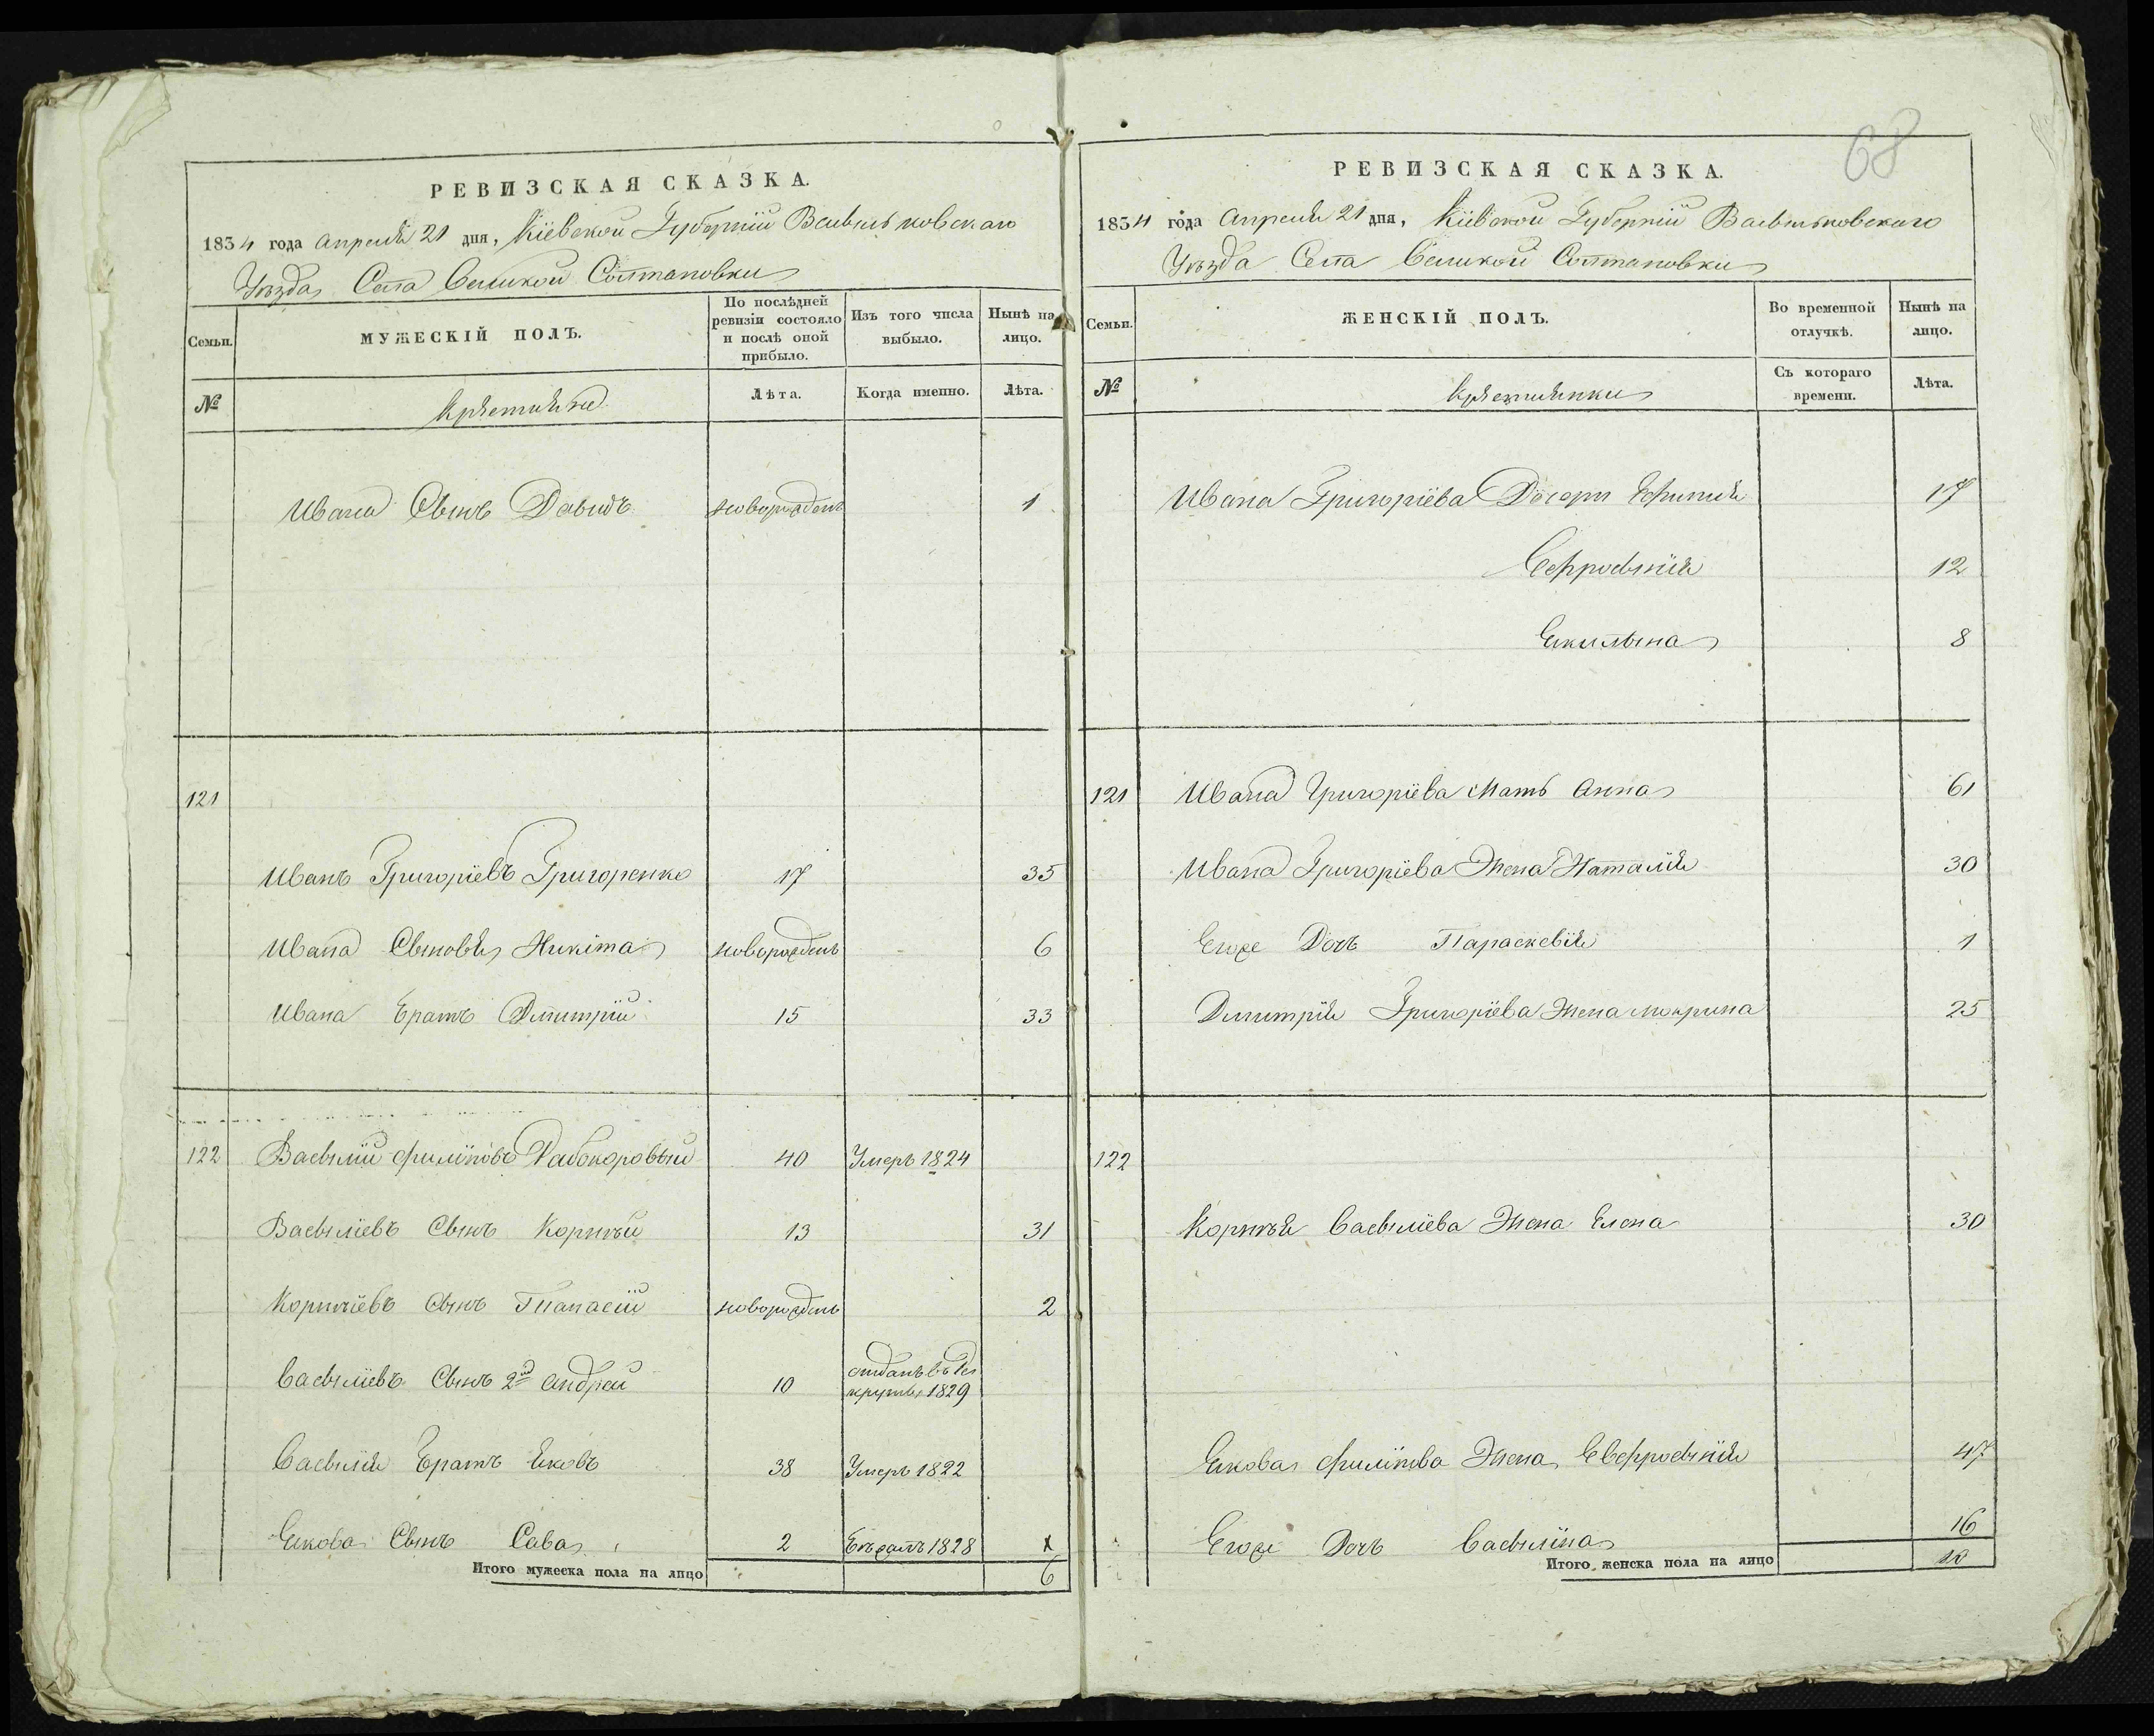 68
РЕВИЗСКАЯ СКАЗКА.
1834 года Апреля 21 дня, Кіевской Губерніи Васильковскаго
Уѣзда Села Великой Солтановки
Семьи. МУЖЕСКІЙ ПОЛЪ. По послѣдней ревизіи состояло и послѣ оной прибыло. Изъ того числа выбыло. Нынѣ на лицо.
№ Крѣстьяне Лѣта. Когда именно. Лѣта.
Ивана Сынъ Давидъ новорожденъ 1
121
Иванъ Григоріевъ Григоренко 17 35
Ивана Сыновья Никіта новорожденъ 6
Ивана Братъ Дмитрій 15 33
122 Василій Филіповъ Рабокоровый 40 Умеръ 1824
Василіевъ Сынъ Корнѣй 13 31
Корнѣіевъ Сынъ Панасій новорожденъ 2
Василіевъ Сынъ 2й Андрей 10 отданъ въ Рекруты 1829
Василія Братъ Яковъ 38 Умеръ 1822
Якова Сынъ Сава 2 Бѣжалъ 1828 x
Итого мужеска пола на лицо 6
РЕВИЗСКАЯ СКАЗКА.
1834 года Апреля 21 дня, Кіевской Губерніи Васильковскаго
Уѣзда Села Великой Солтановки
Семьи. ЖЕНСКІЙ ПОЛЪ. Во временной отлучкѣ. Нынѣ на лицо.
№ Крѣстьянки Съ котораго времени. Лѣта.
Ивана Григоріева Дочери 17
Ефросинія 12
Акилына 8
121 Ивана Григоріева Мать Анна 61
Ивана Григоріева Жена Наталія 30
Егоже Дочь Параскевія 1
Дмитрія Григоріева Жена Мокрина 25
122
Корнѣя Василіева Жена Елена 30
Якова Филіпова Жена Евфросинія 47
Егоже Дочь Василина 16
Итого женска пола на лицо 10